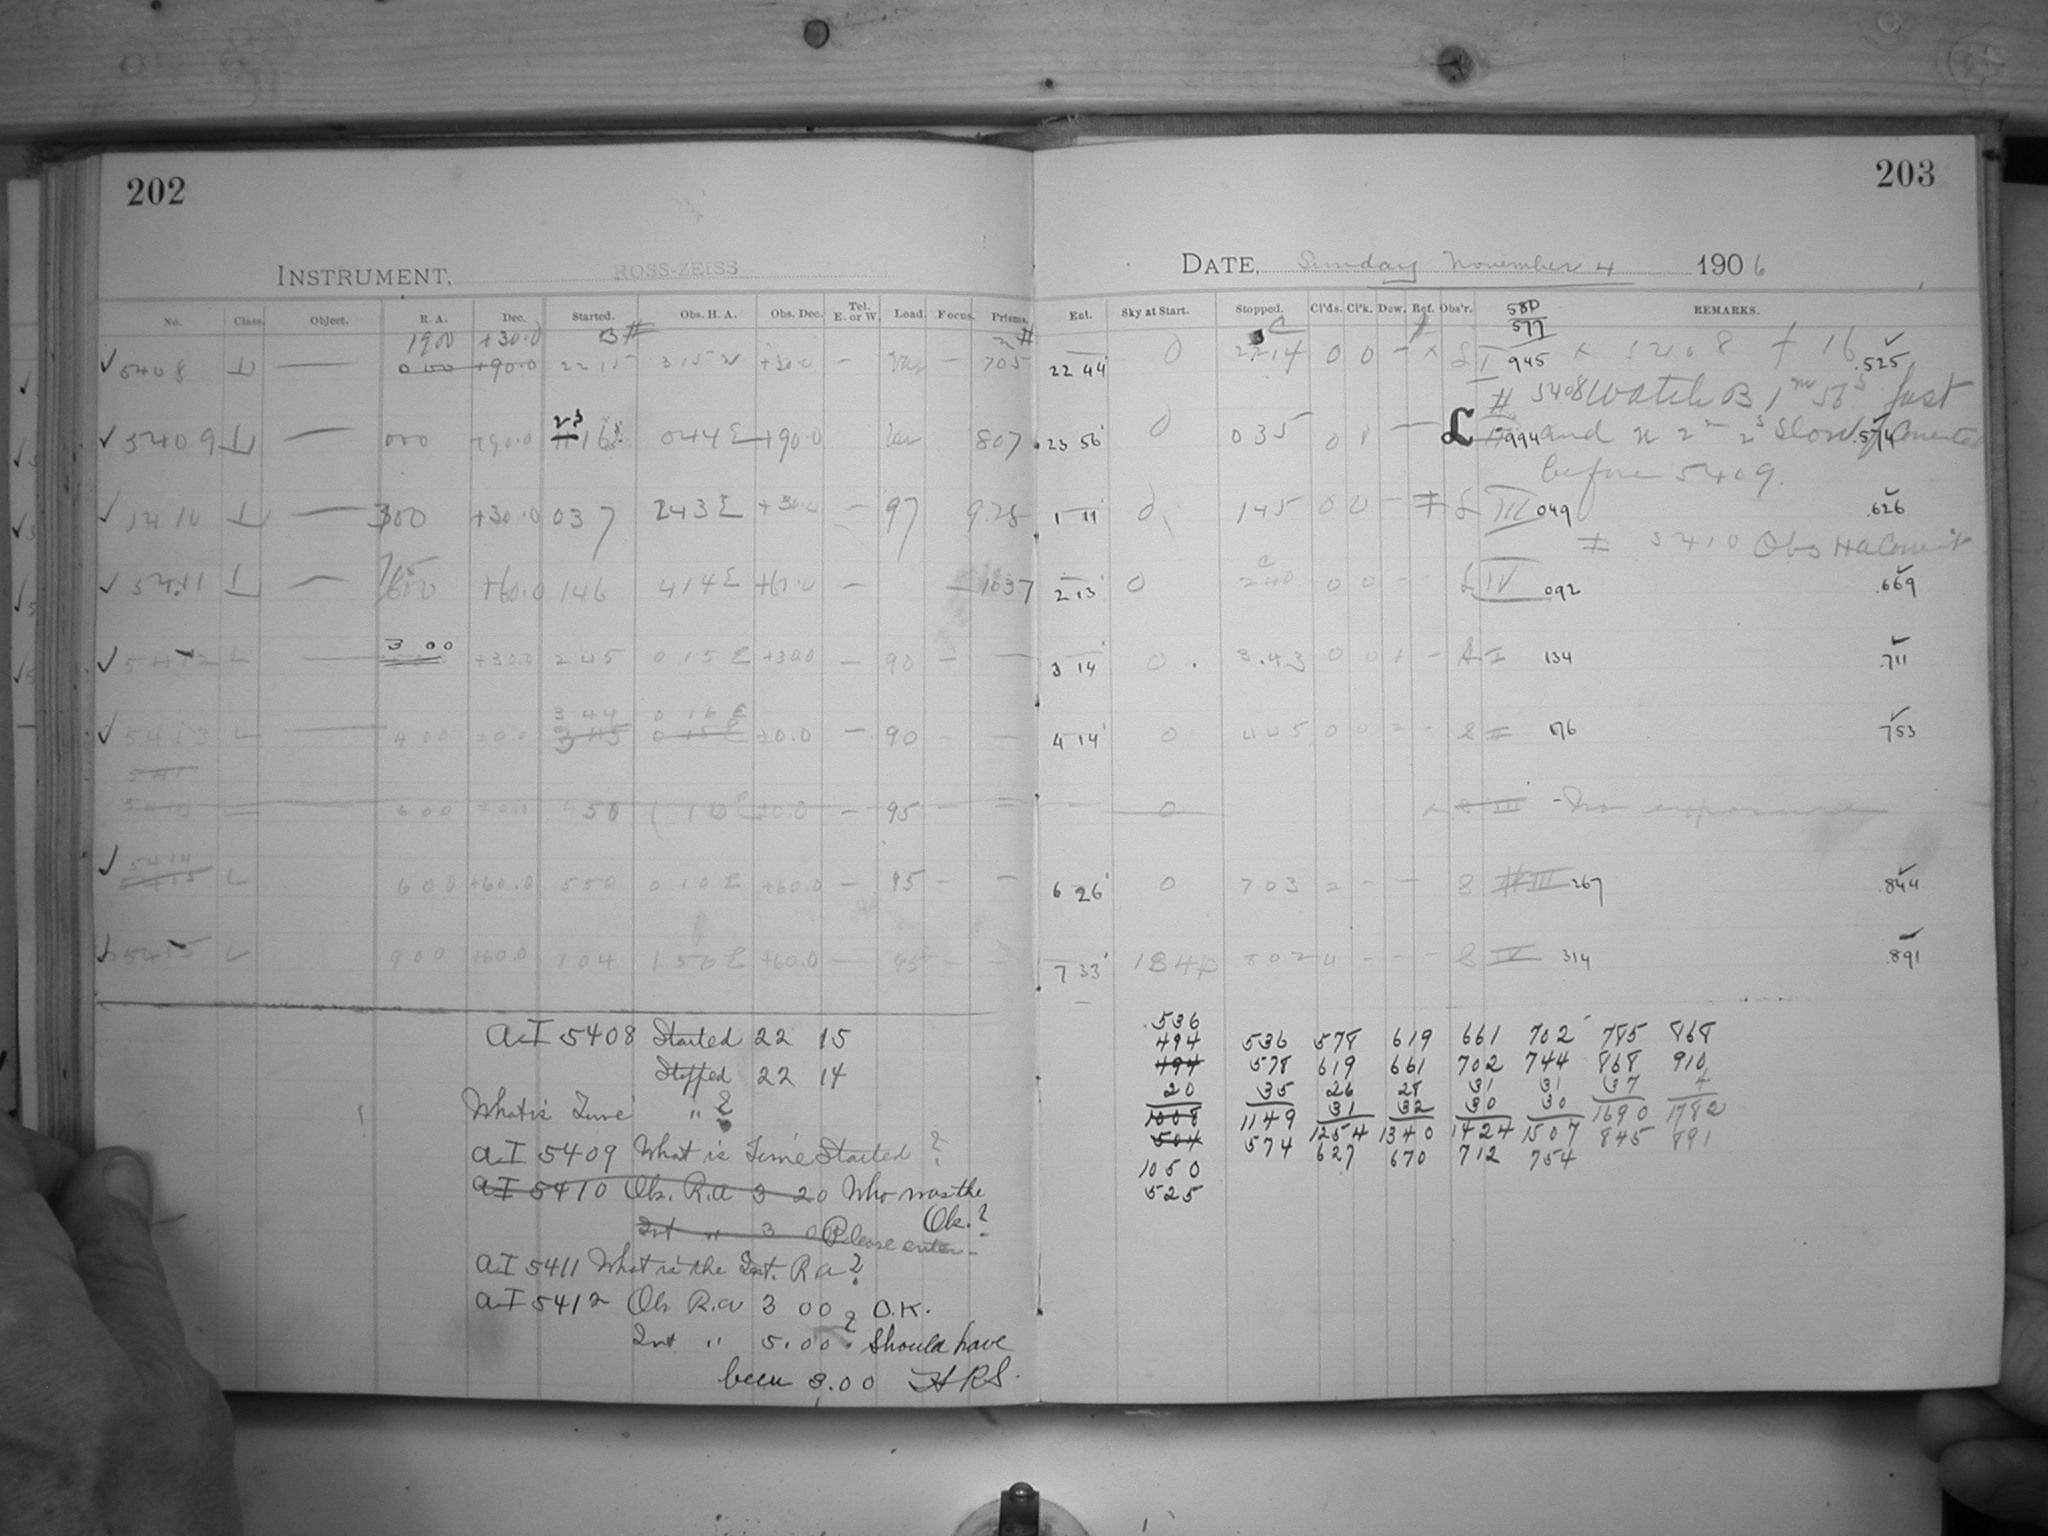 202
INSTRUMENT, ROSS-ZEISS
No. Class. Object. R. A. Dec. Started. Obs. H. A. Obs. Dec. Tel. E. or W. Load. Focus. Prisms.
1900 +30.0
5408 L — 000 +90.0 22 15 +30.0 — Var — 705
5409 L — 000 +90.0 23 16 044 E +90.0 Var 807
5410 L — 300 +30.0 037 243 E +30.0 — 97 9.28
5411 L — 600 +60.0 146 414 E +60.0 — — 1037
3 00
5412 L — +30.0 245 015 E +30.0 — 90 — —
3 44 0 16 E
5413 L — 400 +0.0 345 015 E +0.0 — 90 — —
600 +0.0 450 +0.0 — 95 — —
5414
5415 L 600 +60.0 550 010 E +60.0 — 95 — —
5415 L 900 +60.0 704 150 E +60.0 — 95 — —
A.I 5408 Started 22 15
Stopped 22 14
What is Time " ?
A.I 5409 What is Time Started ?
A.I 5410 Ob. R.a 3 20 Who was the
Ob. ?
Int " 3 00 Please enter
A.I 5411 What is the Int. R a ?
A.I 5412 Ob R.a 3 00 ? O.K.
Int " 5.00. Should have
been 3.00 H R S.
203
DATE, Sunday November 4 1906
Ent. Sky at Start. Stopped. Cl'ds. Cl'k. Dew. Ref. Obs'r. REMARKS.
577
22 44 0 2214 0 0 — × L I 945 × 5408 + 16 .525
# 5408 Watch B 1m 56s fast
23 56 0 035 0 1 — L 994 and 2m 2s slow .574 Corrected
before 5409.
1 11 0 145 0 0 — L III 049 .626
5410 Obs HA Correct
2 13 0 240 0 0 - - L IV 092 .669
3 14 0 3.43 0 0 I 134 .711
4 14 0 445 0 0 - S II 176 753
0 S III - No exposure
6 26 0 703 2 - - S III 267 .844
7 33 1B4p 802 4 - - - S IV 314 .891
536
494 536 578 619 661 702 785 868
494 578 619 661 702 744 868 910
20 35 26 28 31 31 37 4
1008 1149 31 32 30 30 1690 1782
504 574 1254 1340 1424 1507 845 891
1050 627 670 712 754
525